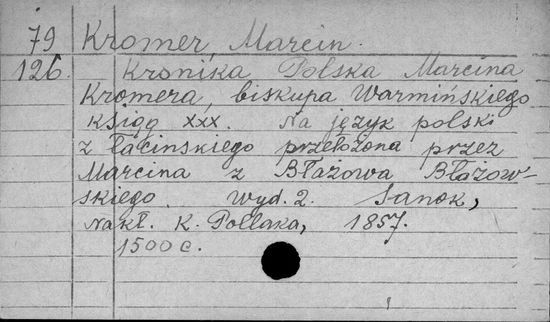 79 Kromer, Marcin.
126. Kronika Polska Marcina
Kromera, biskupa Warmińskiego
ksiąg XXX. Na język polski
z łacinskiego przełożona przez
Marcina z Błażowa Błażow-
skiego. wyd. 2. Sanok,
nakł. K. Pollaka, 1857.
1500 c.